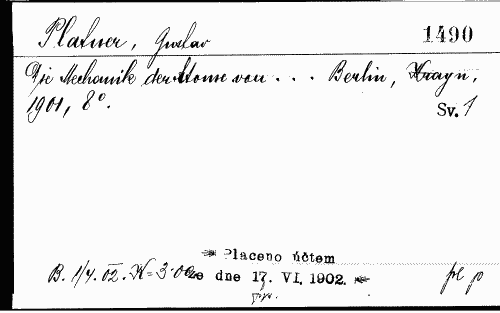 Platner, Gustav 1490
Die Mechanik der Atome von . . . Berlin, Krayn,
1901, 8°. Sv. 1
Placeno účtem
B. 1/4. 02. K = 3·00 ze dne 17. VI. 1902.